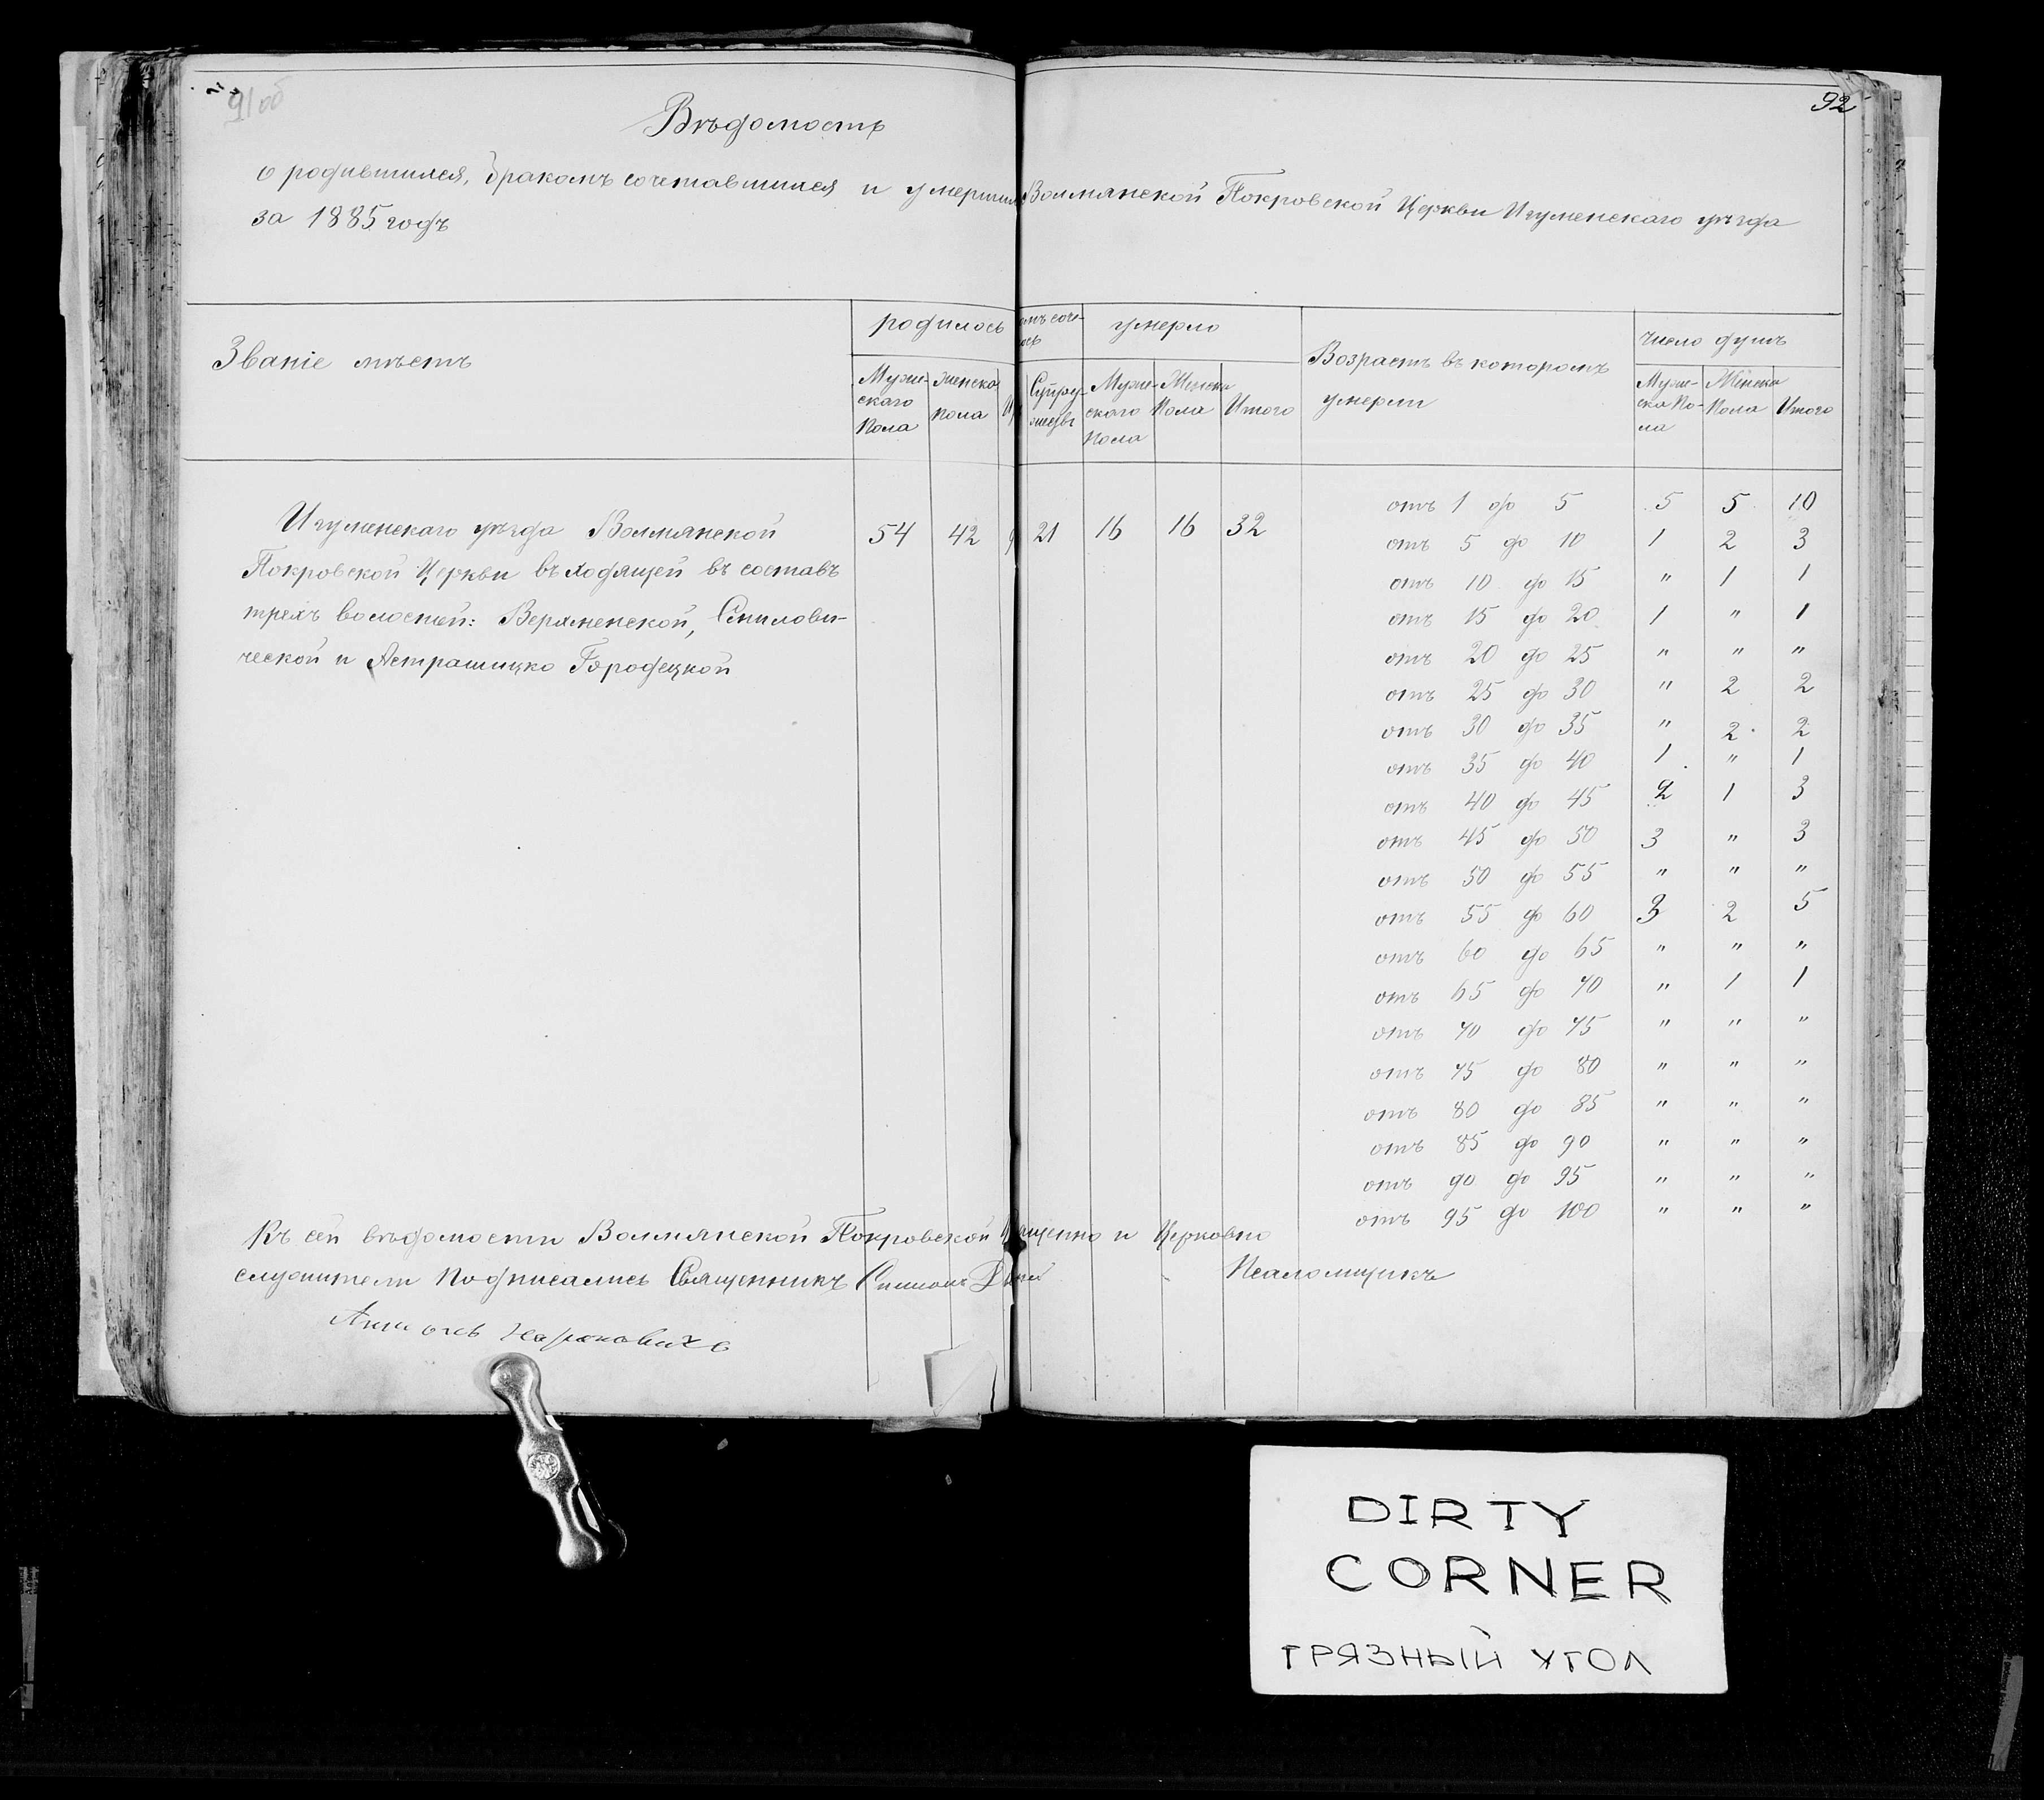 91об
92
Вѣдомость
о родившихся, бракомъ сочетавшихся и умершихъ Волмянской Покровской Церкви Игуменскаго уѣзда
за 1885 годъ
Званіе мѣстъ
родилось
умерло
Возрастъ въ которомъ
умерли
число душъ
Муже-
скаго
Пола
женска
пола
Супру-
жествъ
Муже-
скаго
Пола
Женска
Пола
Итого
Муже-
ска По-
ла
Женска
Пола
Итого
Игуменскаго уѣзда Волмянской
Покровской Церкви въ ходящей въ составъ
трехъ волостей: Верхменской, Смилови-
ческой и Астрашицко Городецкой
54 42 21 16 16 32
отъ 1 до 5 5 5 10
отъ 5 до 10 1 2 3
отъ 10 до 15 " 1 1
отъ 15 до 20 1 " 1
отъ 20 до 25 " " "
отъ 25 до 30 " 2 2
отъ 30 до 35 " 2 2
отъ 35 до 40 1 " 1
отъ 40 до 45 2 1 3
отъ 45 до 50 3 " 3
отъ 50 до 55 " " "
отъ 55 до 60 3 2 5
отъ 60 до 65 " " "
отъ 65 до 70 " 1 1
отъ 70 до 75 " " "
отъ 75 до 80 " " "
отъ 80 до 85 " " "
отъ 85 до 90 " " "
отъ 90 до 95 " " "
отъ 95 до 100 " " "
Къ сей вѣдомости Волмянской Покровской и Церковно
служители Подписались Священникъ Симеонъ Псаломщикъ
Антонъ
DIRTY
CORNER
ГРЯЗНЫЙ УГОЛ